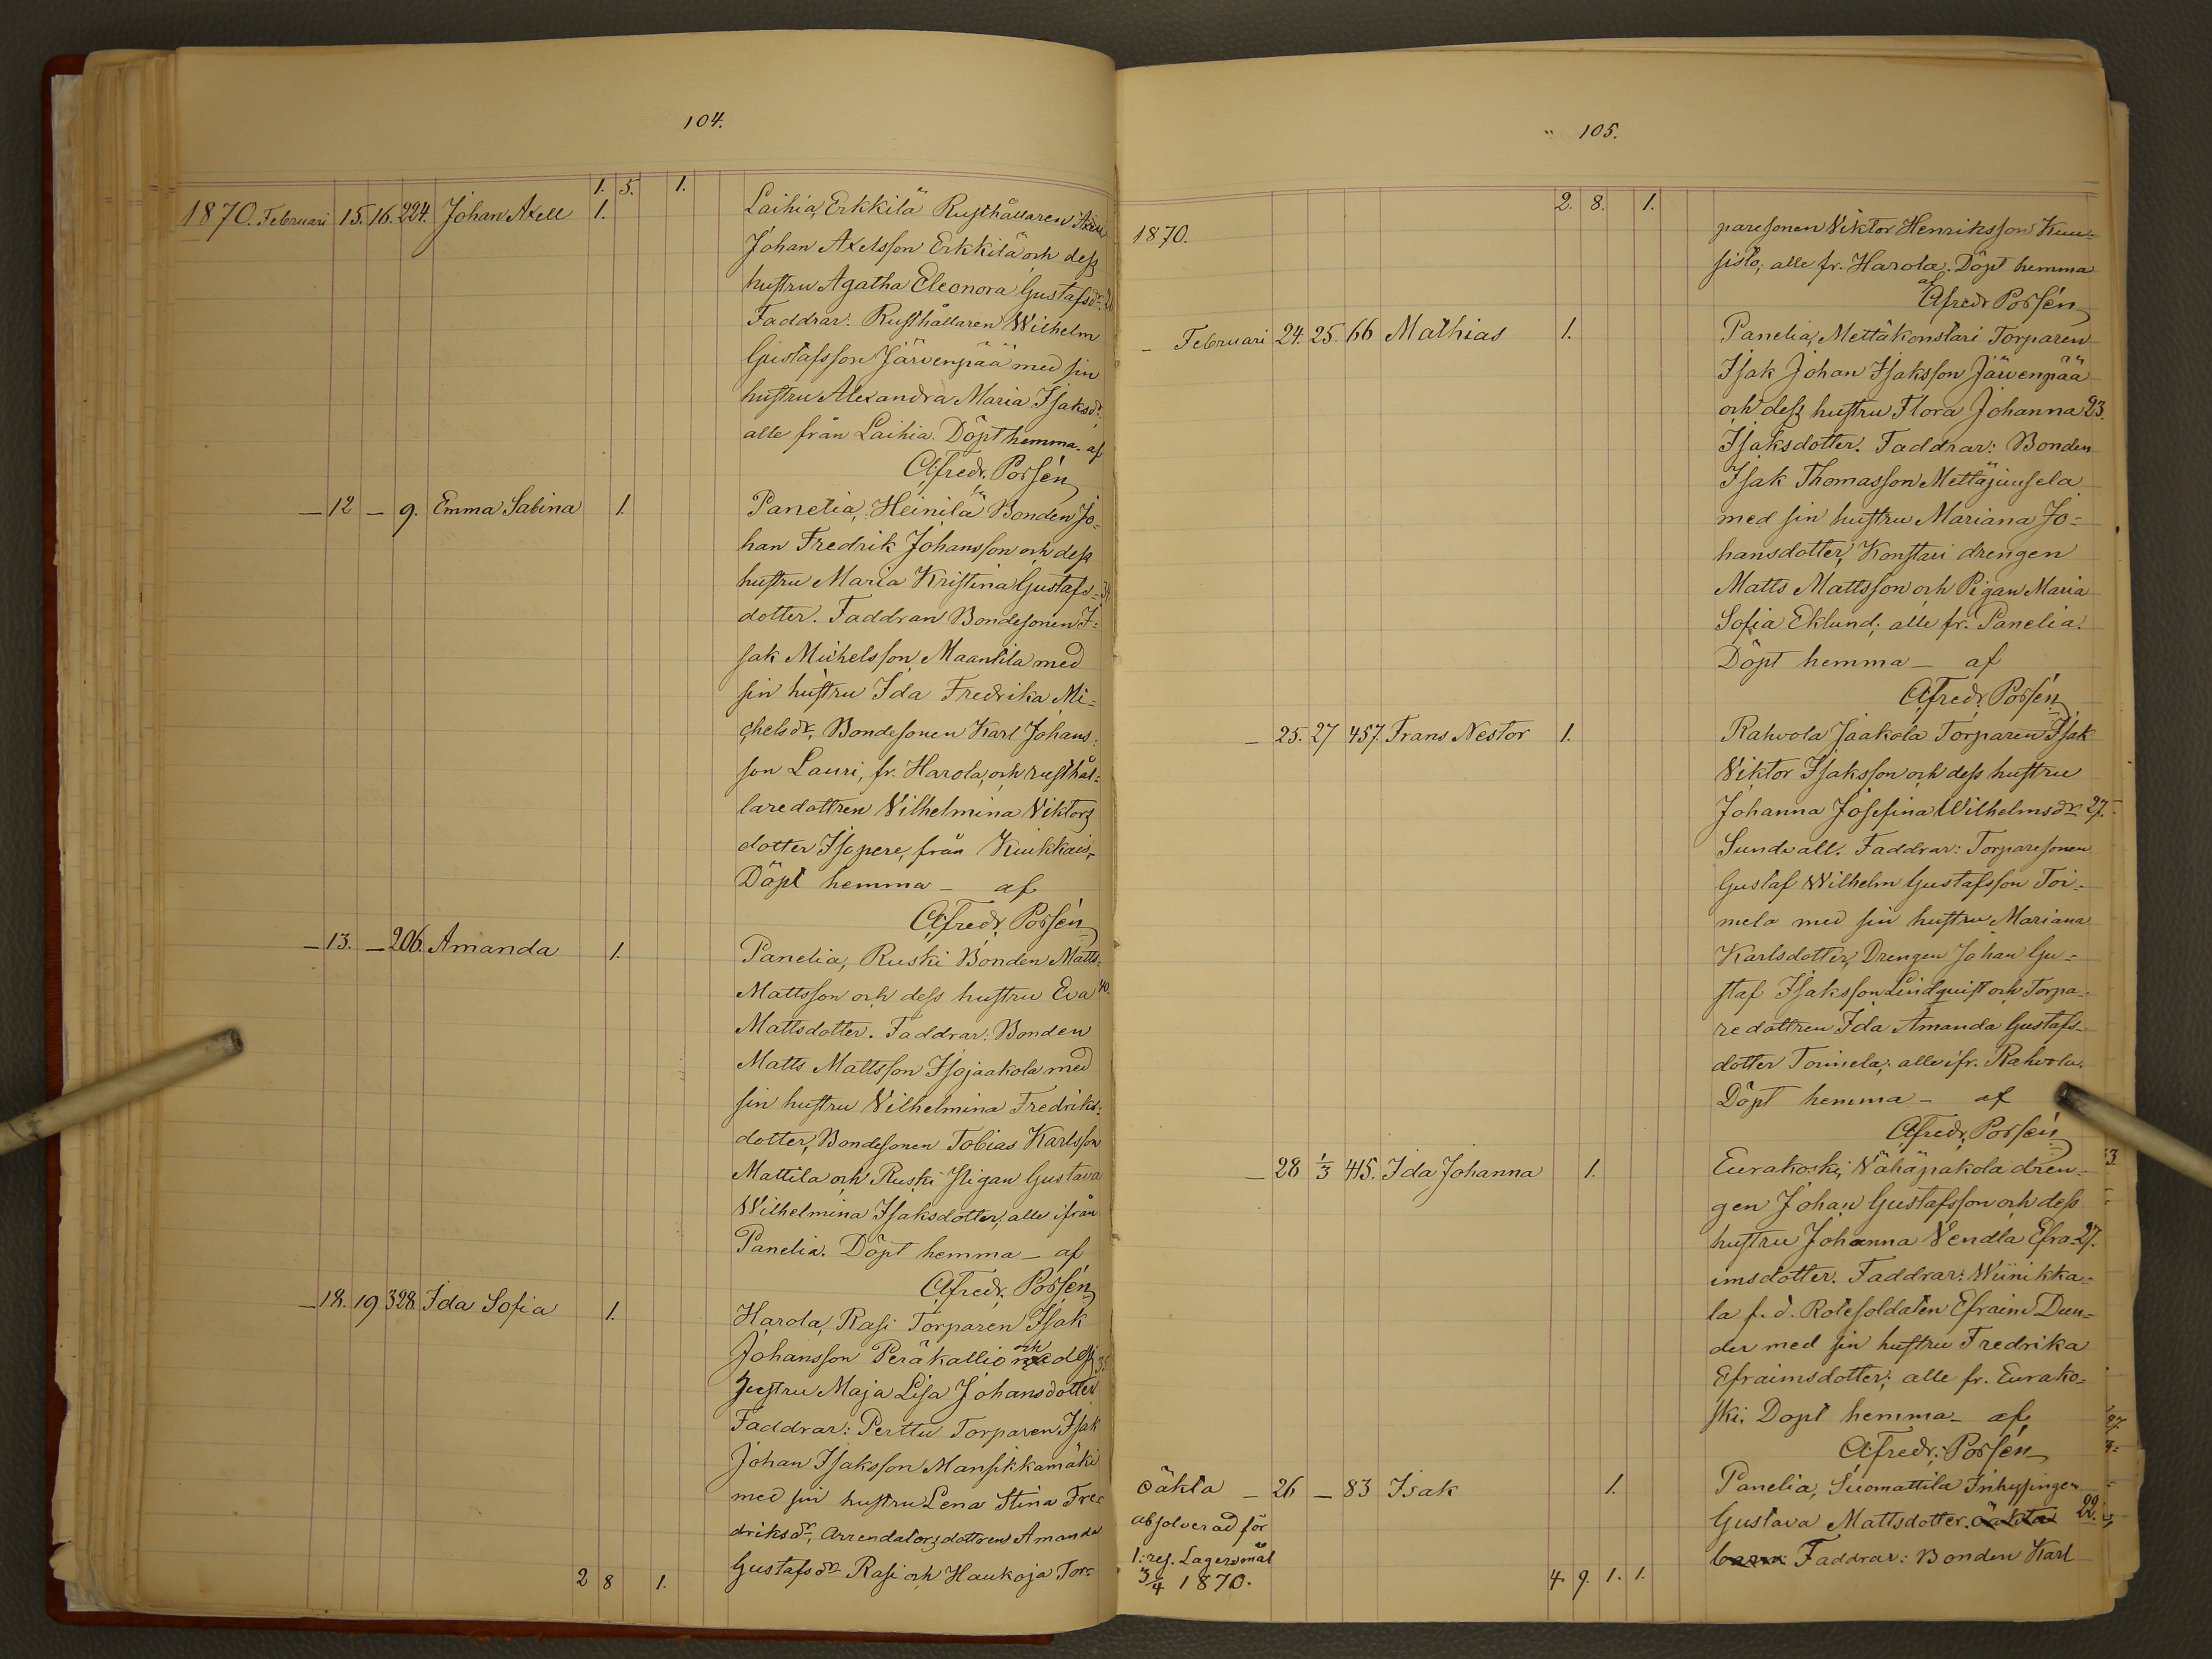 104.
1. 5. 1.
1870. Februari 15. 16. 224. Johan Axell 1. Laihia, Erkkilä Rusthållaren
Johan Axelsson Erkkilä och dess
hustru Agatha Eleonora Gustafsdr.
Faddrar: Rusthållaren Wilhelm
Gustafsson Järvenpää med sin
hustru Alexandra Maria Isaksdr.;
alle från Laihia. Döpt hemma af
Alfredr. Porsén
— 12 — 9. Emma Sabina 1. Panelia, Heinilä Bonden Jo-
han Fredrik Johansson och dess
hustru Maria Kristina Gustafs-
dotter. Faddrar Bondesonen I-
sak Michelsson Maantila med
sin hustru Ida Fredrika Mi-
chelsdr, Bondesonen Karl Johans-
son Lauri, fr. Harola, och rusthål-
laredottren Vilhelmina Viktors
dotter Isopere, från Kiukkais,
Döpt hemma — af
Alfredr. Porsén
— 13. — 206. Amanda 1. Panelia, Ruski Bonden Matts
Mattsson och dess hustru Eva 40.
Mattsdotter. Faddrar: Bonden
Matts Mattsson Isojaakola med
sin hustru Vilhelmina Fredriks-
dotter, Bondesonen Tobias Karlsson
Mattila och Ruski Pigan Gustava
Wilhelmina Isaksdotter, alle ifrån
Panelia. Döpt hemma — af
Alfredr. Porsén
— 18. 19 328. Ida Sofia 1. Harola, Rasi Torparen Isak
Johansson Peräkallio och dess
hustru Maja Lisa Johansdotter
Faddrar: Perttu Torparen Isak
Johan Isaksson Mansikkamäki
med sin hustru Lena Stina Fre-
driksdr, Arrendatorsdottren Amanda
Gustafsdr Rasi och Haukoja Tor-
2 8 1.
105.
2. 8. 1.
1870. paresonen Viktor Henriksson Kuu-
sisto, alle fr. Harola. Döpt hemma
af Alfredr Porsén
— Februari 24. 25. 66 Mathias 1. Panelia, Mettäkonstari Torparen
Isak Johan Isaksson Järvenpää
och dess hustru Flora Johanna 23.
Isaksdotter. Faddrar: Bonden
Isak Thomasson Mettäjuusela
med sin hustru Mariana Jo-
hansdotter, Konstari drengen
Matts Mattsson och Pigan Maria
Sofia Eklund; alle fr. Panelia.
Döpt hemma — af
Alfredr. Porsén
— 25. 27 457. Frans Nestor 1. Rahvola Jaakola Torparen Isak
Viktor Isaksson och dess hustru
Johanna Josefina Wilhelmsdr 27.
Sundvall. Faddrar: Torparesonen
Gustaf Wilhelm Gustafsson Toi-
mela med sin hustru Mariana
Karlsdotter, Drengen Johan Gu-
staf Isaksson Lindquist och Torpa-
redottren Ida Amanda Gustafs-
dotter Toimela; alle ifr. Rahvola.
Döpt hemma — af
Alfredr. Porsén
— 28 1/3 415. Ida Johanna 1. Eurakoski, Vähäpakola dren-
gen Johan Gustafsson och dess
hustru Johanna Vendla Efra- 27.
imsdotter. Faddrar: Wiinikka-
la f. d. Rotesoldaten Efraim Dun-
der med sin hustru Fredrika
Efraimsdotter; alle fr. Eurako-
ski. Döpt hemma — af
Alfredr. Porsén
oäkta — 26 — 83 Isak 1. Panelia, Suomattila Inhysingen
absolverad för Gustava Mattsdotter. oäkta 22.
1: res. Lagersmål barn. Faddrar: Bonden Karl
3/4 1870. 4. 9. 1. 1.